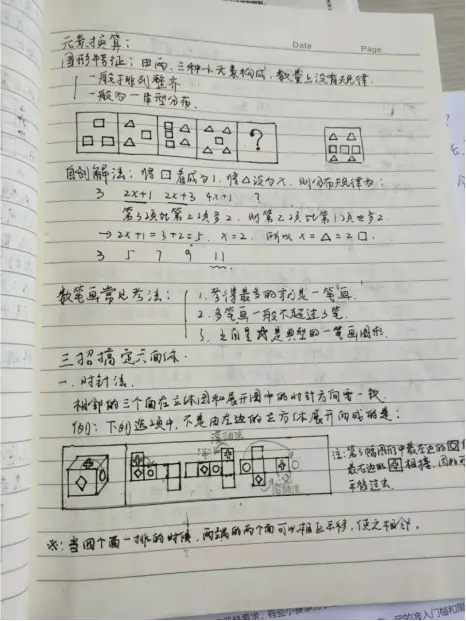 Date Page
元素换算：
图形特征：由两、三种小元素构成，数量上没有规律.
一般于排列整齐
一般为一库型分布.
?
自创解法：将□看成为1，将△设为x，则分布规律为：
3 2x+1 2x+3 4x+1 ?
第3项比第2项多2，则第2项比第1项也多2.
→ 2x+1=3+2=5. x=2. 所以 x=△=2□.
3 5 7 9 11
数笔画常见考法：
1. 考得最多的方为一笔画.
2. 多笔画一般不超过3笔.
3. 五角星 是典型的一笔画图形.
三招搞定六面体.
一、时针法.
相邻的三个面在立体图和展开图中的时针方向要一致.
例：下列选项中，不是由左边的立方体展开而成的是：
注：第3幅图形中最左边的
最右边的 相接，因此可
平移过去.
※：当四个面一排的时候，两端的两个面可以相互平移，使之相邻.